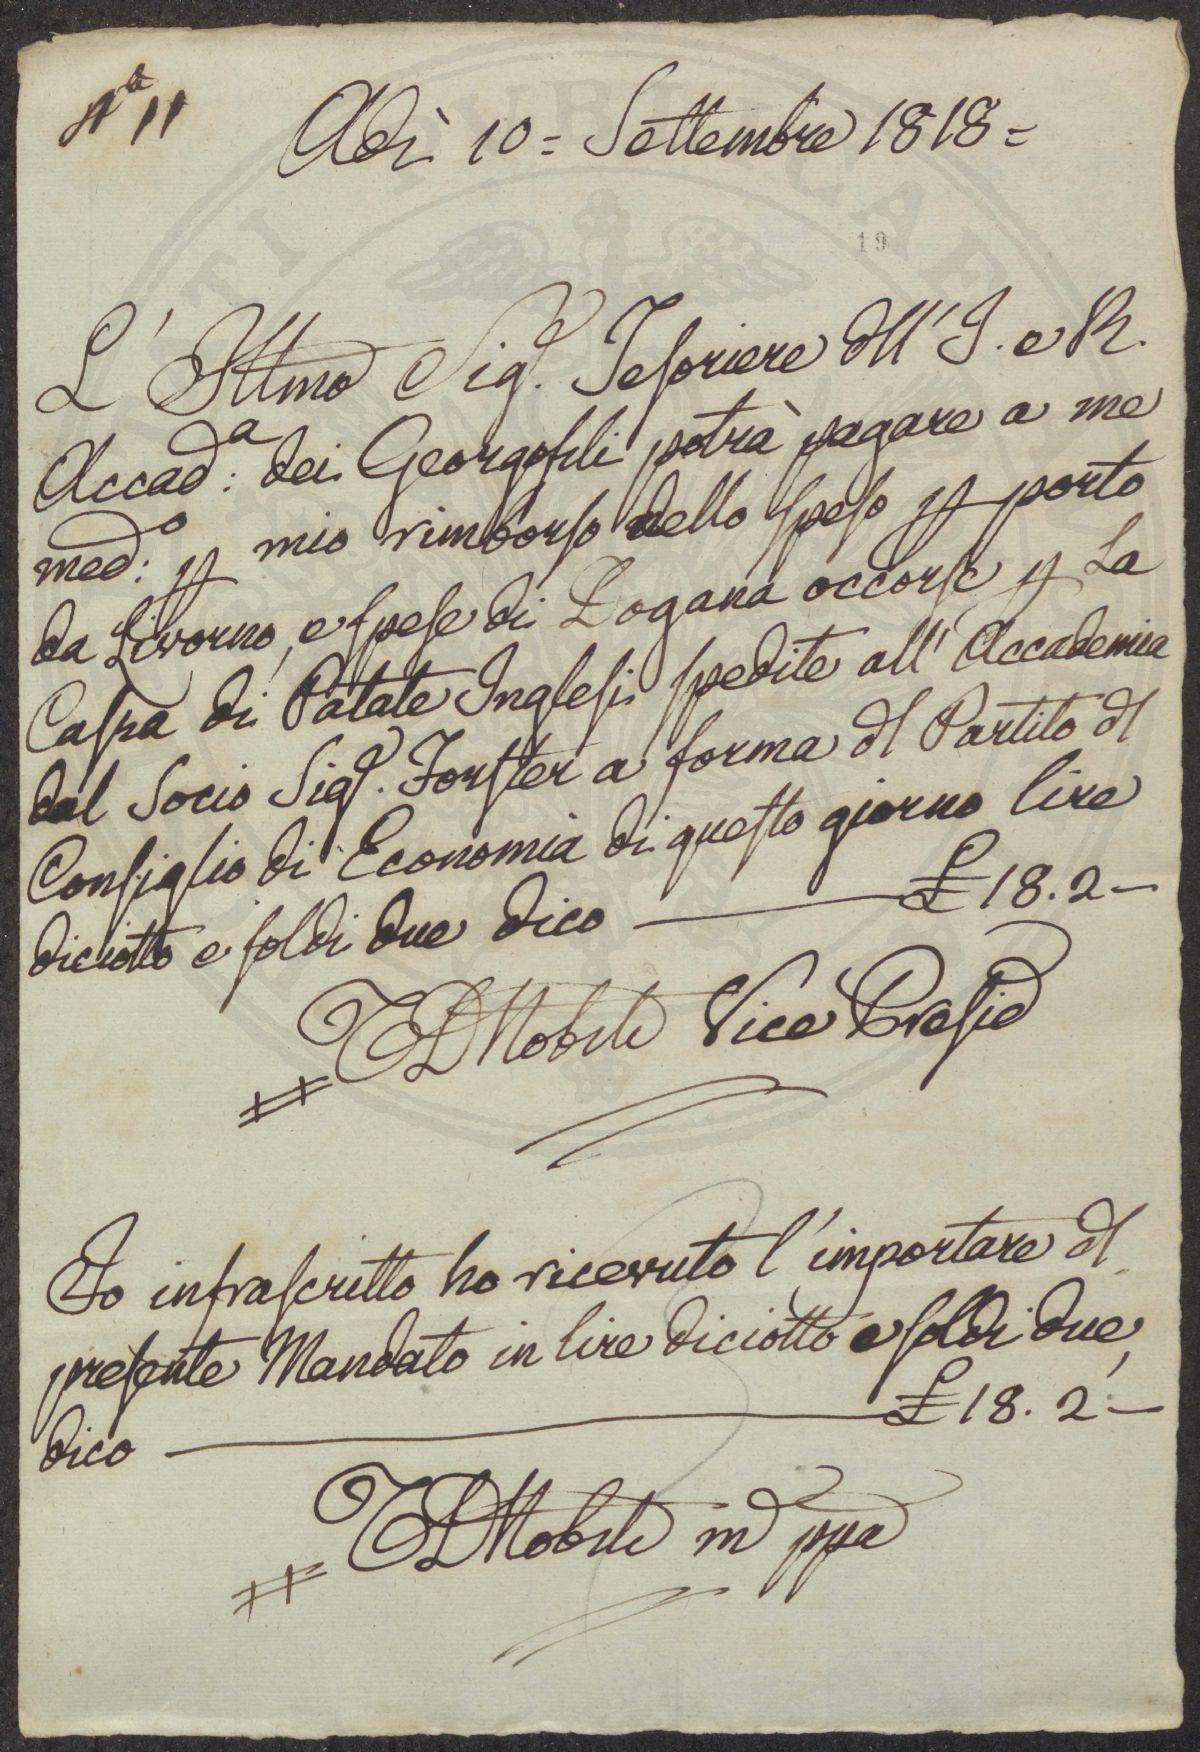 N° 11
Adì 10 = Settembre 1818 =
19
L' Illmo Sig.r Tesoriere dell' I. e R.
Accad:a dei Georgofili potrà pagare a me
med:o p mio rimborso delle spese p porto
da Livorno, e spese di Dogana occorse p La
Cassa di Patate Inglesi spedite all' Accademia
dal Socio Sig.r Forster a forma del Partito del
Consiglio di Economia di questo giorno lire
diciotto e soldi due dico £ 18. 2 —
Nobili Vice Presid
Io infrascritto ho ricevuto l' importare del
presente Mandato in lire diciotto e soldi due,
dico £ 18. 2. —
Nobili m ppa